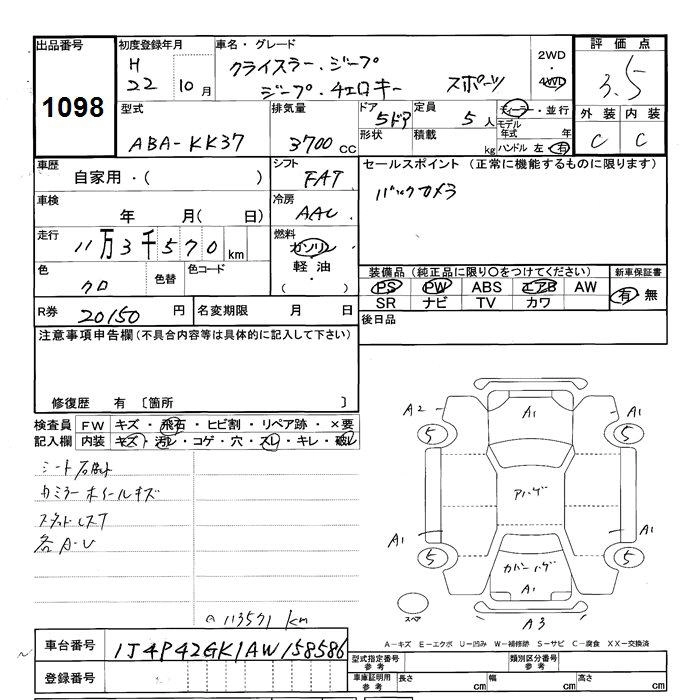 出品番号 初度登録年月 車名・グレード 評価点
1098
H 22 10月
クライスラー・ジープ
ジープ・チェロキー スポーツ
2WD 4WD
3.5
型式 排気量 ドア 定員 ディーラー・並行
ABA-KK37 3700cc 5ドア 5人
形状 積載 kg
モデル年式 年
ハンドル 左 右
外装 内装
C C
車歴 シフト セールスポイント (正常に機能するものに限ります)
自家用・( ) FAT
バックカメラ
車検 冷房
年 月( 日) AAC
走行 燃料
11万3千570km ガソリン
軽油
・( )
色 色替 色コード
クロ
装備品 (純正品に限り○をつけてください) 新車保証書
PS PW ABS エアB AW 有 無
SR ナビ TV カワ
R券 20150円 名変期限 月 日
後日品
注意事項申告欄 (不具合内容等は具体的に記入して下さい)
修復歴 有 〔箇所 〕
検査員 FW キズ・飛石・ヒビ割・リペア跡・×要
記入欄 内装 キズ・汚レ・コゲ・穴・スレ・キレ・破レ
各A・U
113571 km
A2 A1 A1
5 5
アハゲ
A1 A1
5 5
カバーハゲ
A1
スペア
A3
A-キズ E-エクボ U-凹み W-補修跡 S-サビ C-腐食 XX-交換済
車台番号 1J4P42GK1AW158586
登録番号
型式指定番号 参考 類別区分番号 参考
車庫証明用 参考 長さ cm 幅 cm 高さ cm